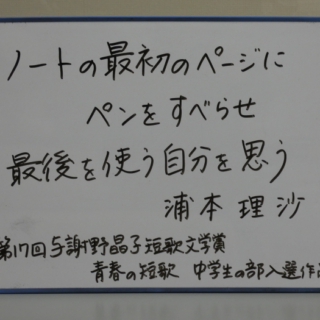 ノートの最初のページに
ペンをすべらせ
最後を使う自分を思う
浦本理沙
第17回与謝野晶子短歌文学賞
青春の短歌 中学生の部入選作品